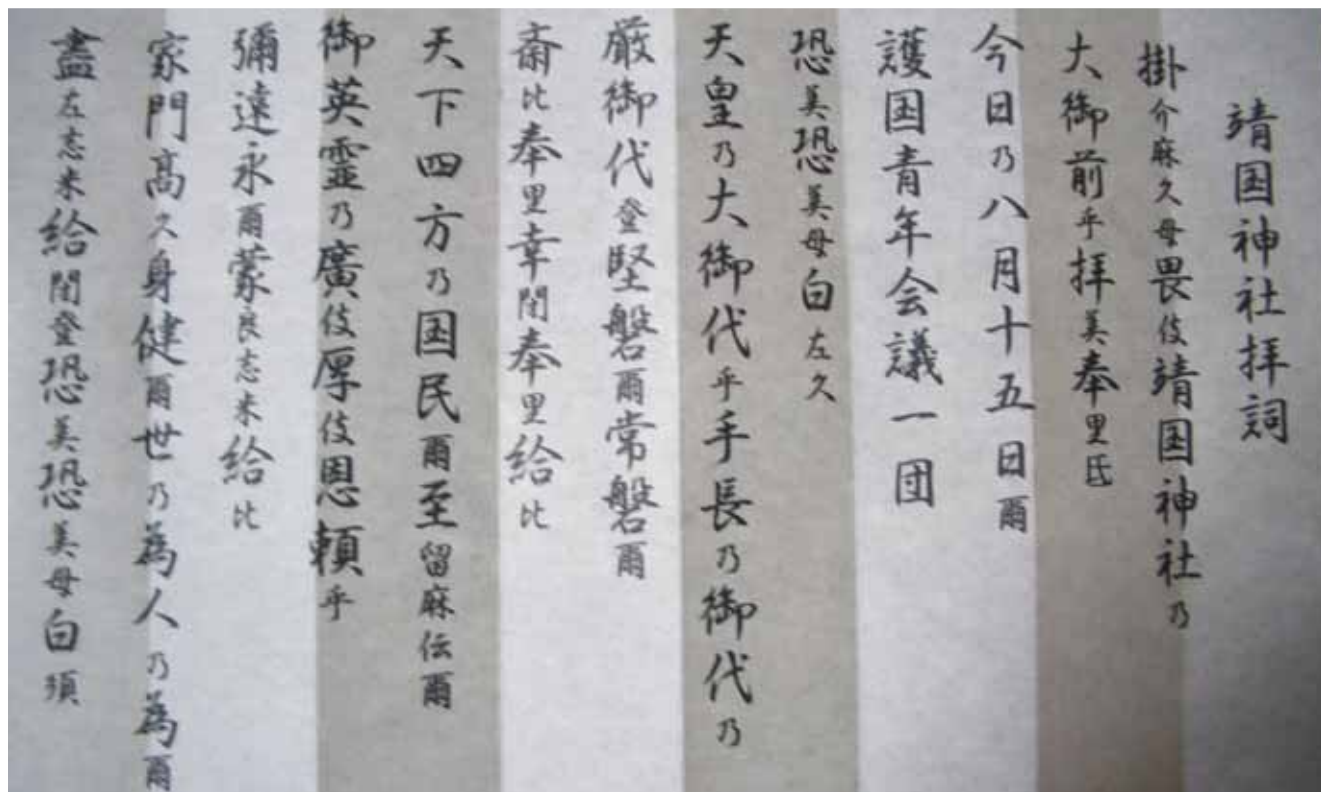 靖国神社拝詞
掛介麻久母畏伎靖国神社乃
大御前乎拝美奉里氐
今日乃八月十五日爾
護国青年会議一団
恐美恐美母白左久
天皇乃大御代乎手長乃御代乃
厳御代登堅磐爾常磐爾
斎比奉里幸閇奉里給比
天下四方乃国民爾至留麻伝爾
御英霊乃廣伎厚伎恩頼乎
彌遠永爾蒙良志米給比
家門高久身健爾世乃為人乃為爾
盡左志米給閇登恐美恐美母白須